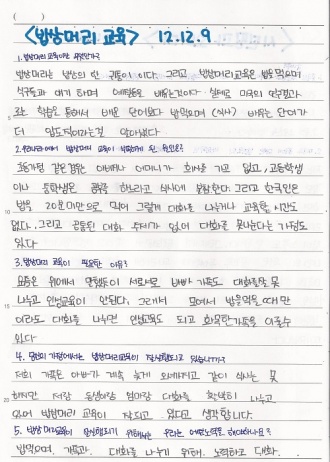 ( )
<밥상머리 교육> 12.12.9
1. 밥상머리 교육이란 무엇인가?
밥상머리는 밥상의 한 귀퉁이 이다. 그리고 밥상머리교육은 밥을 먹으며
식구들과 얘기 하며 예절등을 배우는것이다. 실제로 미국의 연구결과
학습을 통해서 배운 단어보다 밥먹으며 (식사) 배우는 단어가
더 압도적이라는걸 알아냈다.
2. 우리나라에서 밥상머리 교육이 부족하게 된 원인은?
같은경우는 아버지나 어머니가 회사를 가고 없고, 고등학생
이나 중학생은 공부 하느라고 식사에 불참한다. 그리고 한국인은
밥을 20분미만으로 먹어 그렇게 대화를 나누거나 교육할 시간도
10
없다. 그리고 공통된 대화 주제가 없어 대화를 못나눈다는 가정도
있다
3. 밥상머리 교육이 필요한 이유?
요즘은 위에서 말했듯이 서로서로 바빠 가족도 대화를 못
나누고 인성교육이 안된다. 그래서 모여서 밥을먹을 때 만
15
이라도 대화를 나누면 인성교육도 되고 화목한가족을 이룰수
있다
4. 당신의 가정에서는 밥상머리교육이 잘 실천되고 있습니까?
저희 가족은 아빠가 계속 늦게 오셔가지고 같이 식사는 못
하지만 저랑 동생이랑 엄마랑 대화를 활발히 나누고
20
있어 밥상머리 교육이 잘되고 있다고 생각합니다.
5. 밥상머리교육이 실천되기 위해서는 우리는 어떤노력을 해야하나요?
밥먹으며, 가족과 대화를 나누기 위해, 노력하고 대화